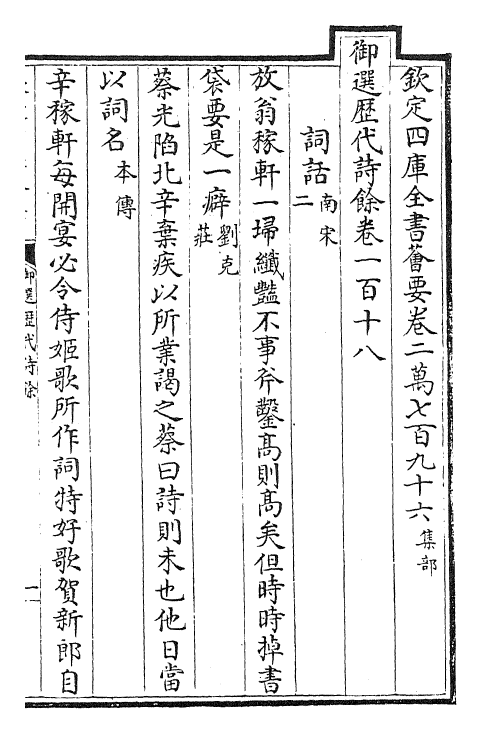 欽定四庫全書薈要卷二萬七百九十六集部
御選歷代詩餘卷一百十八
詞話南宋二
放翁稼軒一埽纖豔不事斧鑿高則高矣但時時掉書
袋要是一癖劉克莊
蔡光陷北辛棄疾以所業謁之蔡曰詩則未也他日當
以詞名本傳
辛稼軒每開宴必令侍姬歌所作詞特好歌賀新郎自
御選歷代詩餘
一